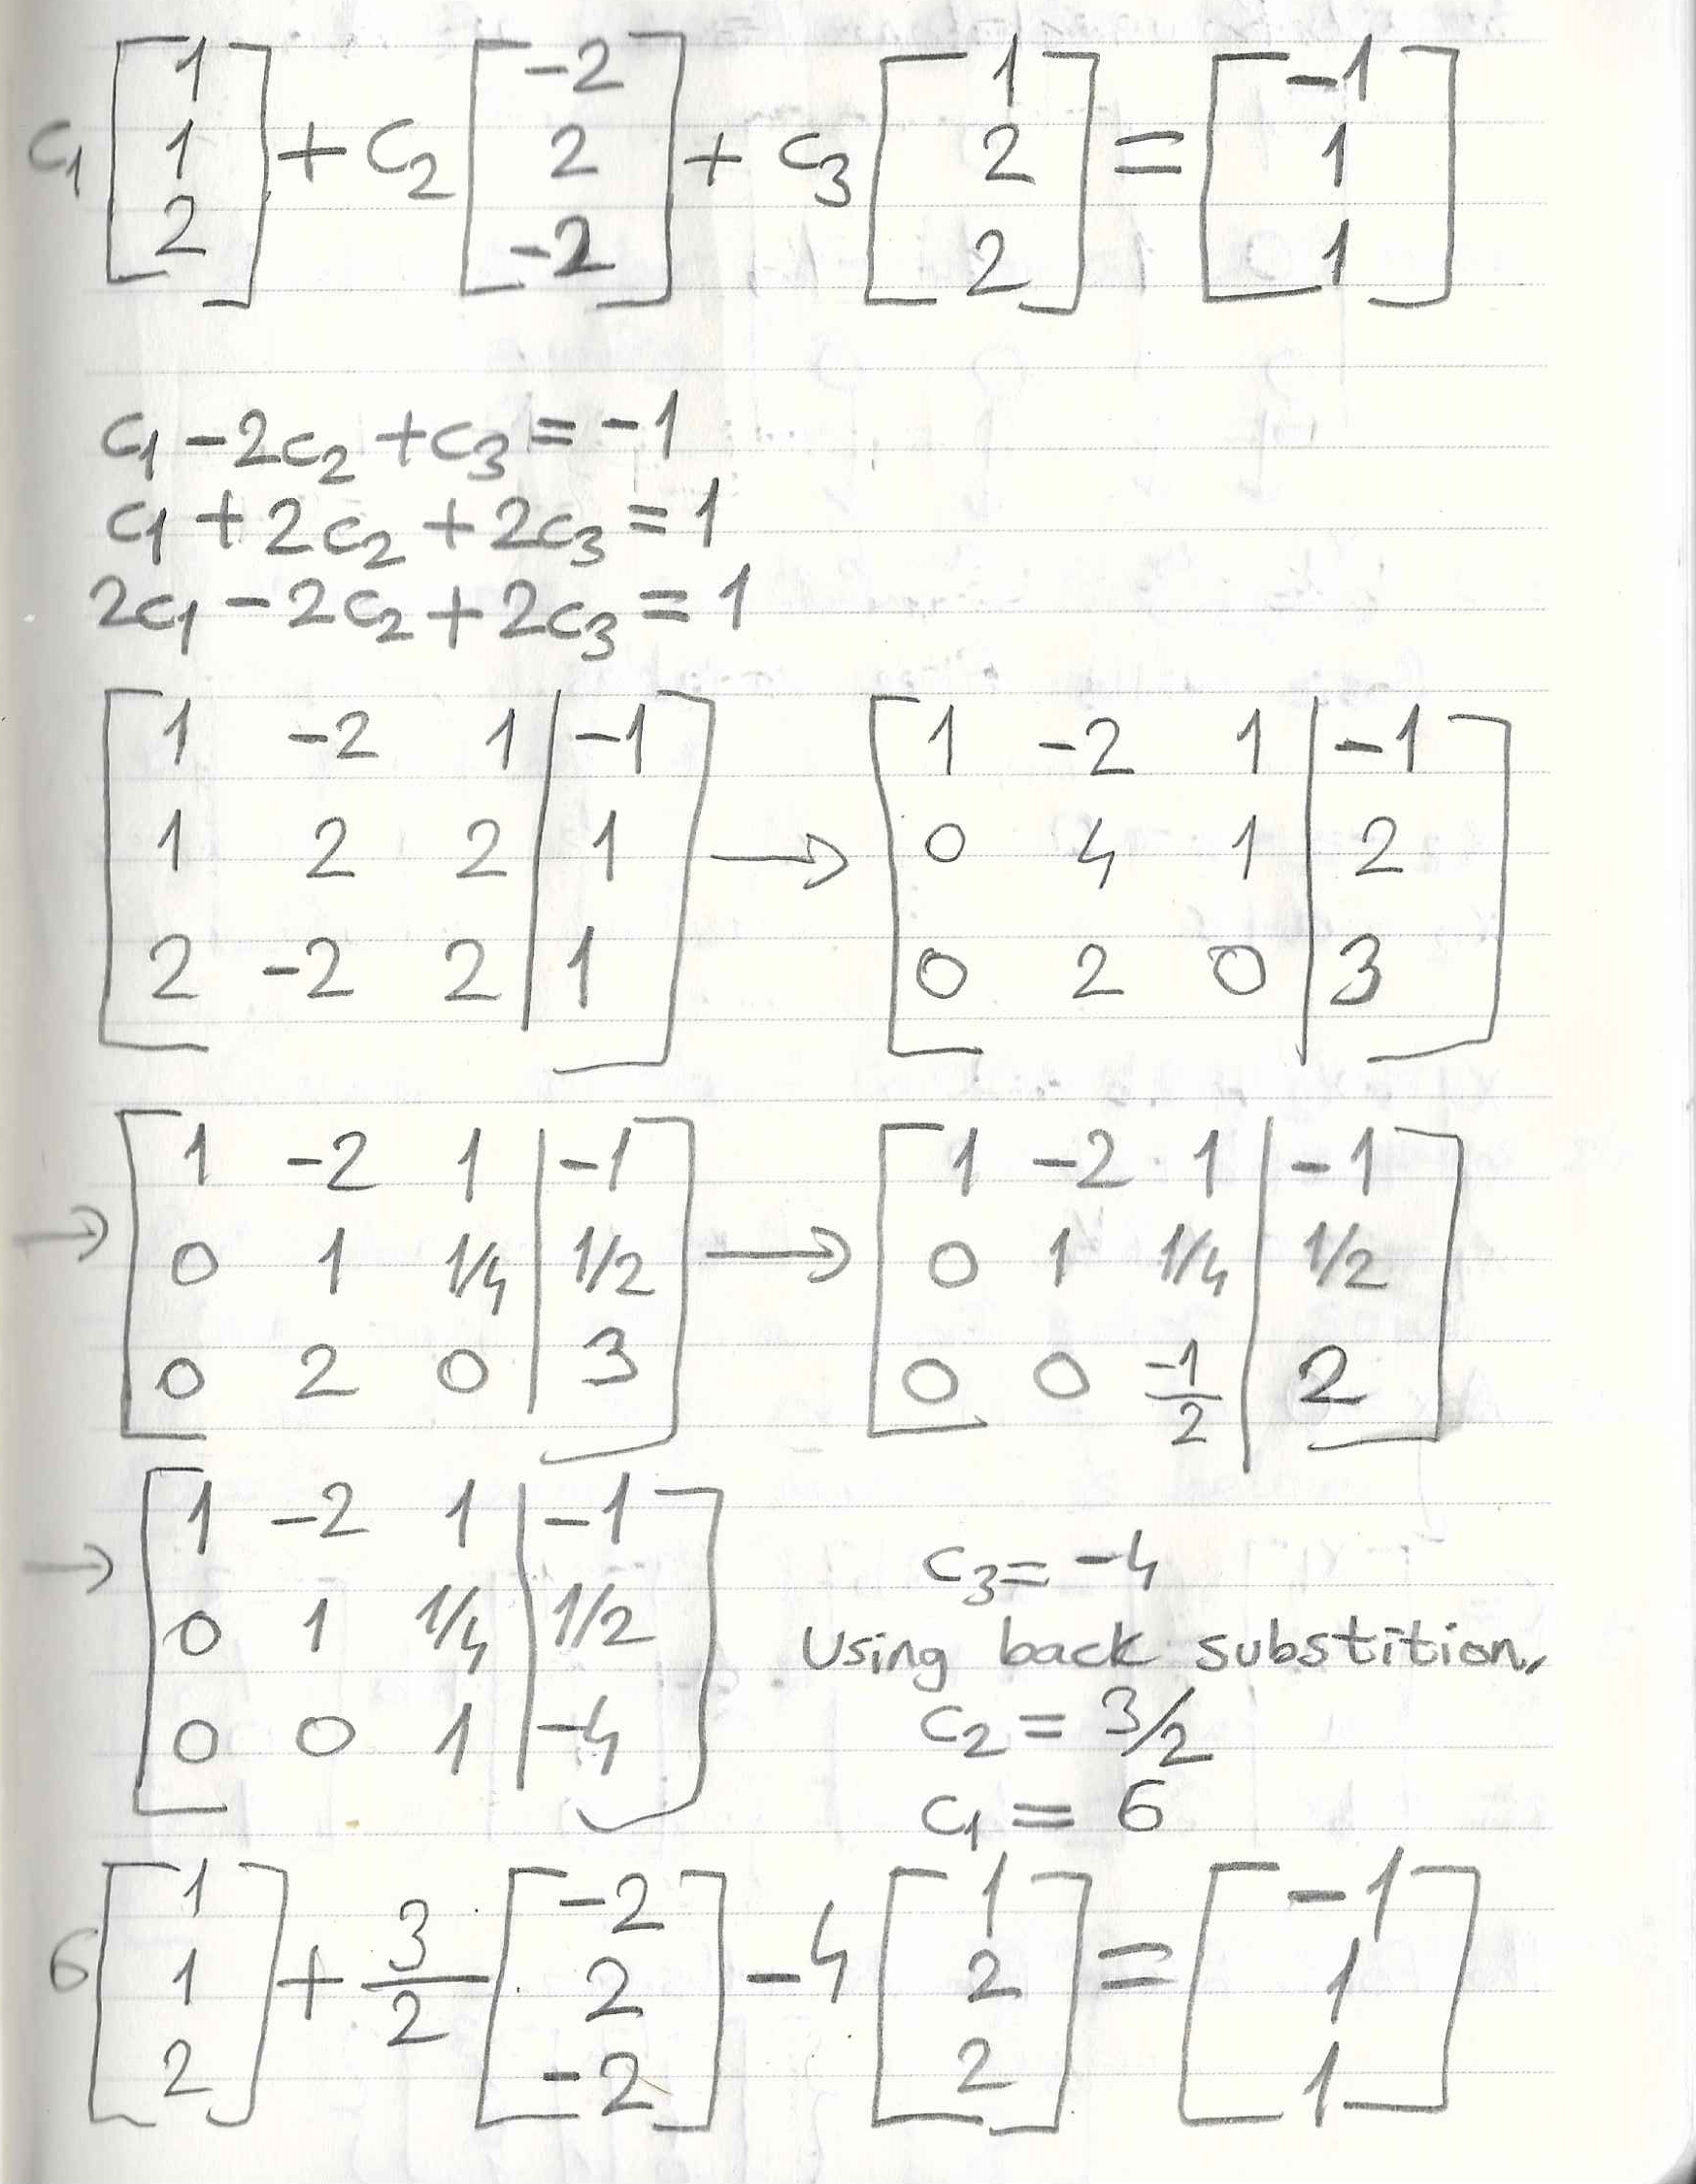 c₁ [1 1 2] + c₂ [-2 2 -2] + c₃ [1 2 2] = [-1 1 1]
c₁ - 2c₂ + c₃ = -1
c₁ + 2c₂ + 2c₃ = 1
2c₁ - 2c₂ + 2c₃ = 1
[1 -2 1 | -1] → [1 -2 1 | -1]
[1 2 2 | 1] [0 4 1 | 2]
[2 -2 2 | 1] [0 2 0 | 3]
→ [1 -2 1 | -1] → [1 -2 1 | -1]
[0 1 1/4 | 1/2] [0 1 1/4 | 1/2]
[0 2 0 | 3] [0 0 -1/2 | 2]
→ [1 -2 1 | -1]
[0 1 1/4 | 1/2]
[0 0 1 | -4]
c₃ = -4
Using back substition,
c₂ = 3/2
c₁ = 6
6 [1 1 2] + 3/2 [-2 2 -2] - 4 [1 2 2] = [-1 1 1]